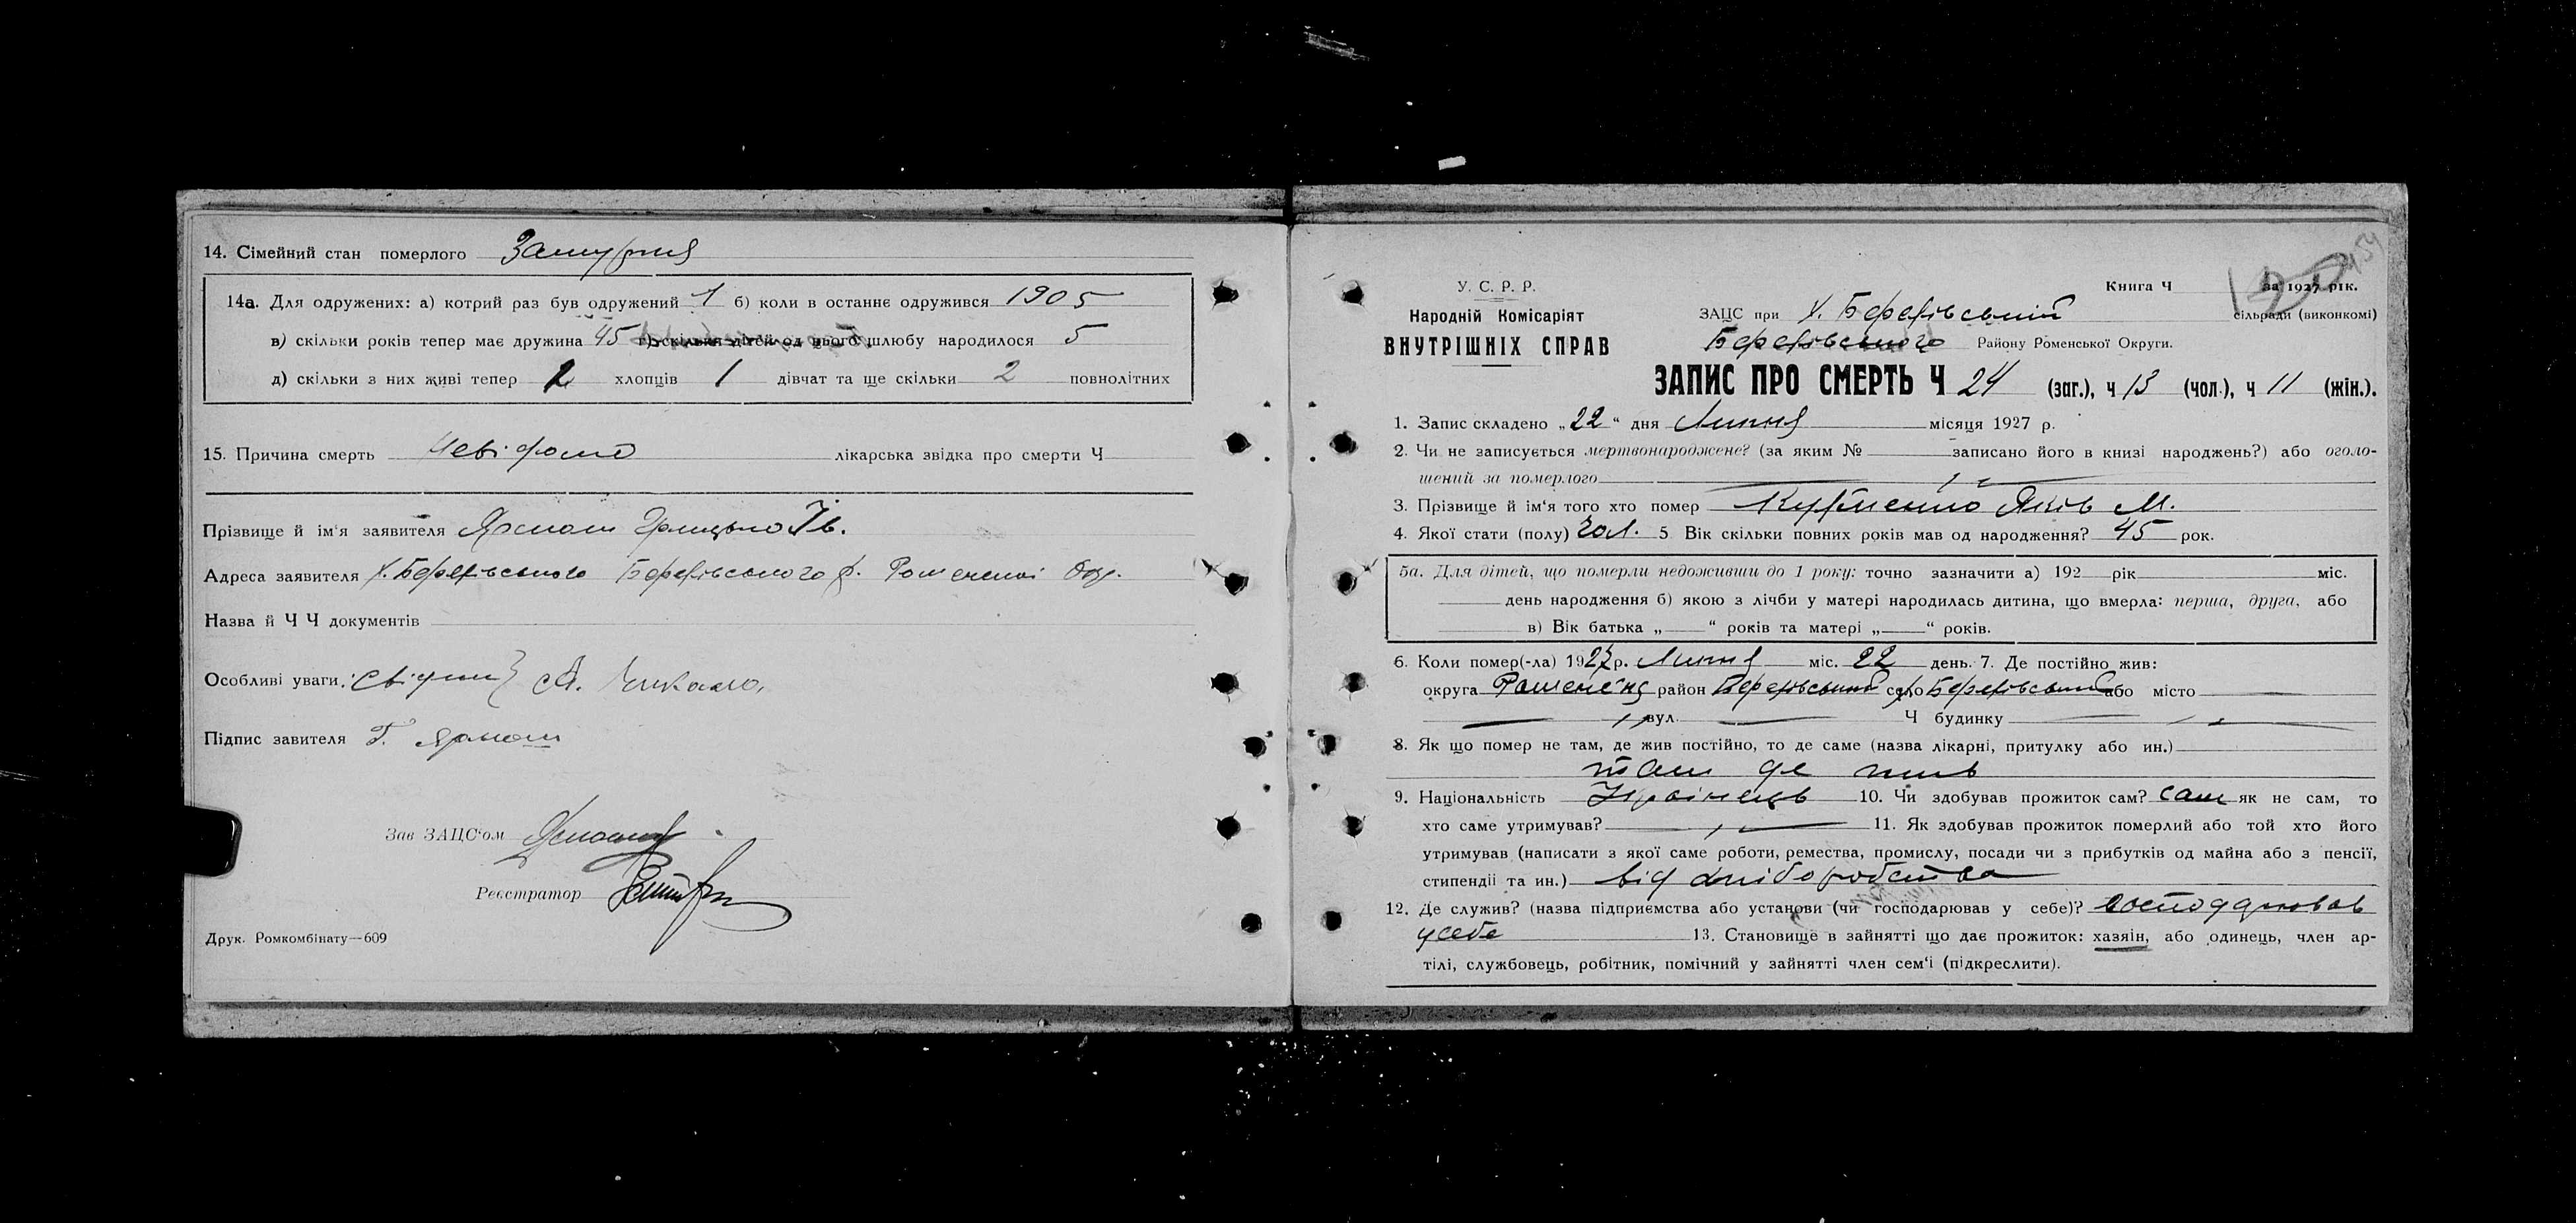 14. Сімейний стан померлого
14а. Для одружених: а) котрий раз був одружений 1 б) коли в останнє одружився 1905
в) скільки років тепер має дружина 45 г) скільки дітей од цього шлюбу народилося 5
д) скільки з них живі тепер 2 хлопців 1 дівчат та ще скільки 2 повнолітних
15. Причина смерть Невідомо лікарська звідка про смерти Ч
Прізвище й ім'я заявителя Ярмош Грицько Ів.
Адреса заявителя Х. р. Роменської Окр.
Назва й Ч Ч документів
Особливі уваги: свідки
Підпис завителя Г. Ярмош
Зав ЗАЦС'ом
Реєстратор
Друк. Ромкомбінату—609
У. С. Р. Р.
Народній Комісаріят
ВНУТРІШНІХ СПРАВ
Книга Ч за 1927 рік.
ЗАЦС при Х. сільради (виконкомі)
Району Роменської Округи.
ЗАПИС ПРО СМЕРТЬ Ч 24 (заг.), ч 13 (чол.), ч 11 (жін.).
1. Запис складено „22" дня Липня місяця 1927 р.
2. Чи не записується мертвонароджене? (за яким № записано його в книзі народжень?) або оголо-
шений за померлого
3. Прізвище й ім'я того хто помер Яків М.
4. Якої стати (полу) чол. 5 Вік скільки повних років мав од народження? 45 рок.
5а. Для дітей, що померли недоживши до 1 року: точно зазначити а) 192 рік міс.
день народження б) якою з лічби у матері народилась дитина, що вмерла: перша, друга, або
в) Вік батька „ " років та матері „ " років.
6. Коли помер(-ла) 1927 р. Липня міс. 22 день. 7. Де постійно жив:
округа район село або місто
вул. Ч будинку
8. Як що помер не там, де жив постійно, то де саме (назва лікарні, притулку або ин.)
там де жив
9. Національність Українець 10. Чи здобував прожиток сам? сам як не сам, то
хто саме утримував? 11. Як здобував прожиток померлий або той хто його
утримував (написати з якої саме роботи, ремества, промислу, посади чи з прибутків од майна або з пенсії,
стипендії та ин.) від хліборобства
12. Де служив? (назва підприємства або установи (чи господарював у себе)? господарював
у себе 13. Становище в зайнятті що дає прожиток: хазяін, або одинець, член ар-
тілі, службовець, робітник, помічний у зайнятті член сем'і (підкреслити).